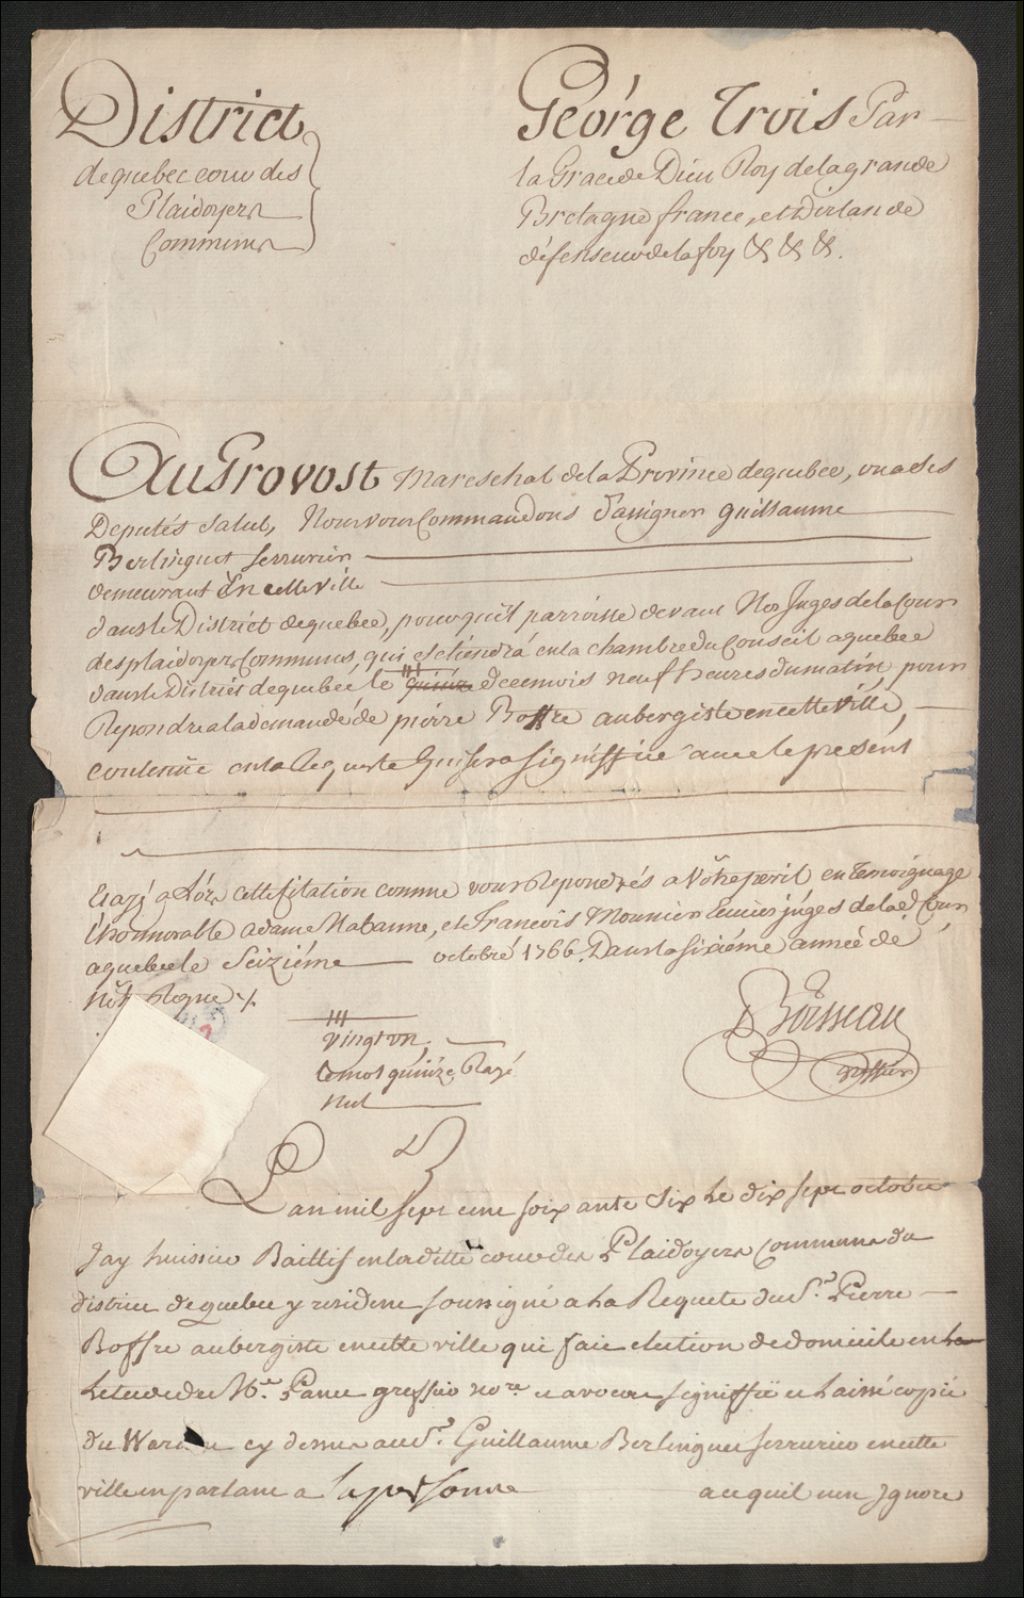 District
de quebec cour des
Plaidoyers
Communs
George Trois Par
la Grace de Dieu Roy de la grande
Bretagne france, et Dirlande
défenseur de la foy & & &.
Au Provost Mareschal de la Province de quebec, ou a ses
Deputés Salut, Nous vous Commandons Dassigner guillaume
Berlinguet serrurier
demeurant En cette ville
dans le District de quebec, pour quil parroisse devant Nos Juges de la Cour
des plaidoyers Communs, qui se tiendra en la chambre du Conseil a quebec
dans le District de quebec le quinze de ce mois neuf heures du matin pour
Repondre a la demande de pierre Boffre aubergiste en cette ville,
contenüe en la Requeste qui sera signiffié avec le présent
cette sitation comme vous Repondrés a Vôtre peril en Temoignage
Lhonnorable adame Mabanne, et francois Mounier Ecuier juges de la d. Cour
a quebec le Seiziéme octobré 1766. Dans la sixiéme année de
Nôt Regne ./.
vingt un,
le mot quinze Rayé
Nul
Boisseau
greffier
Lan mil sept cent soixante Six Le dix sept octobre
Jay huissier Baillif en laditte cour des Plaidoyers Communs du
district de quebec y resident soussigné a La Requete du Sr. Pierre
Boffre aubergiste en cette ville qui fait election de domicile en
Letude de Me. Panet greffier nore et avocat signiffié et Laissé copie
du cy dessus au Sr. Guillaume Berlinguet serrurier en cette
ville en parlant a sa personne a ce quil nen Jgnore